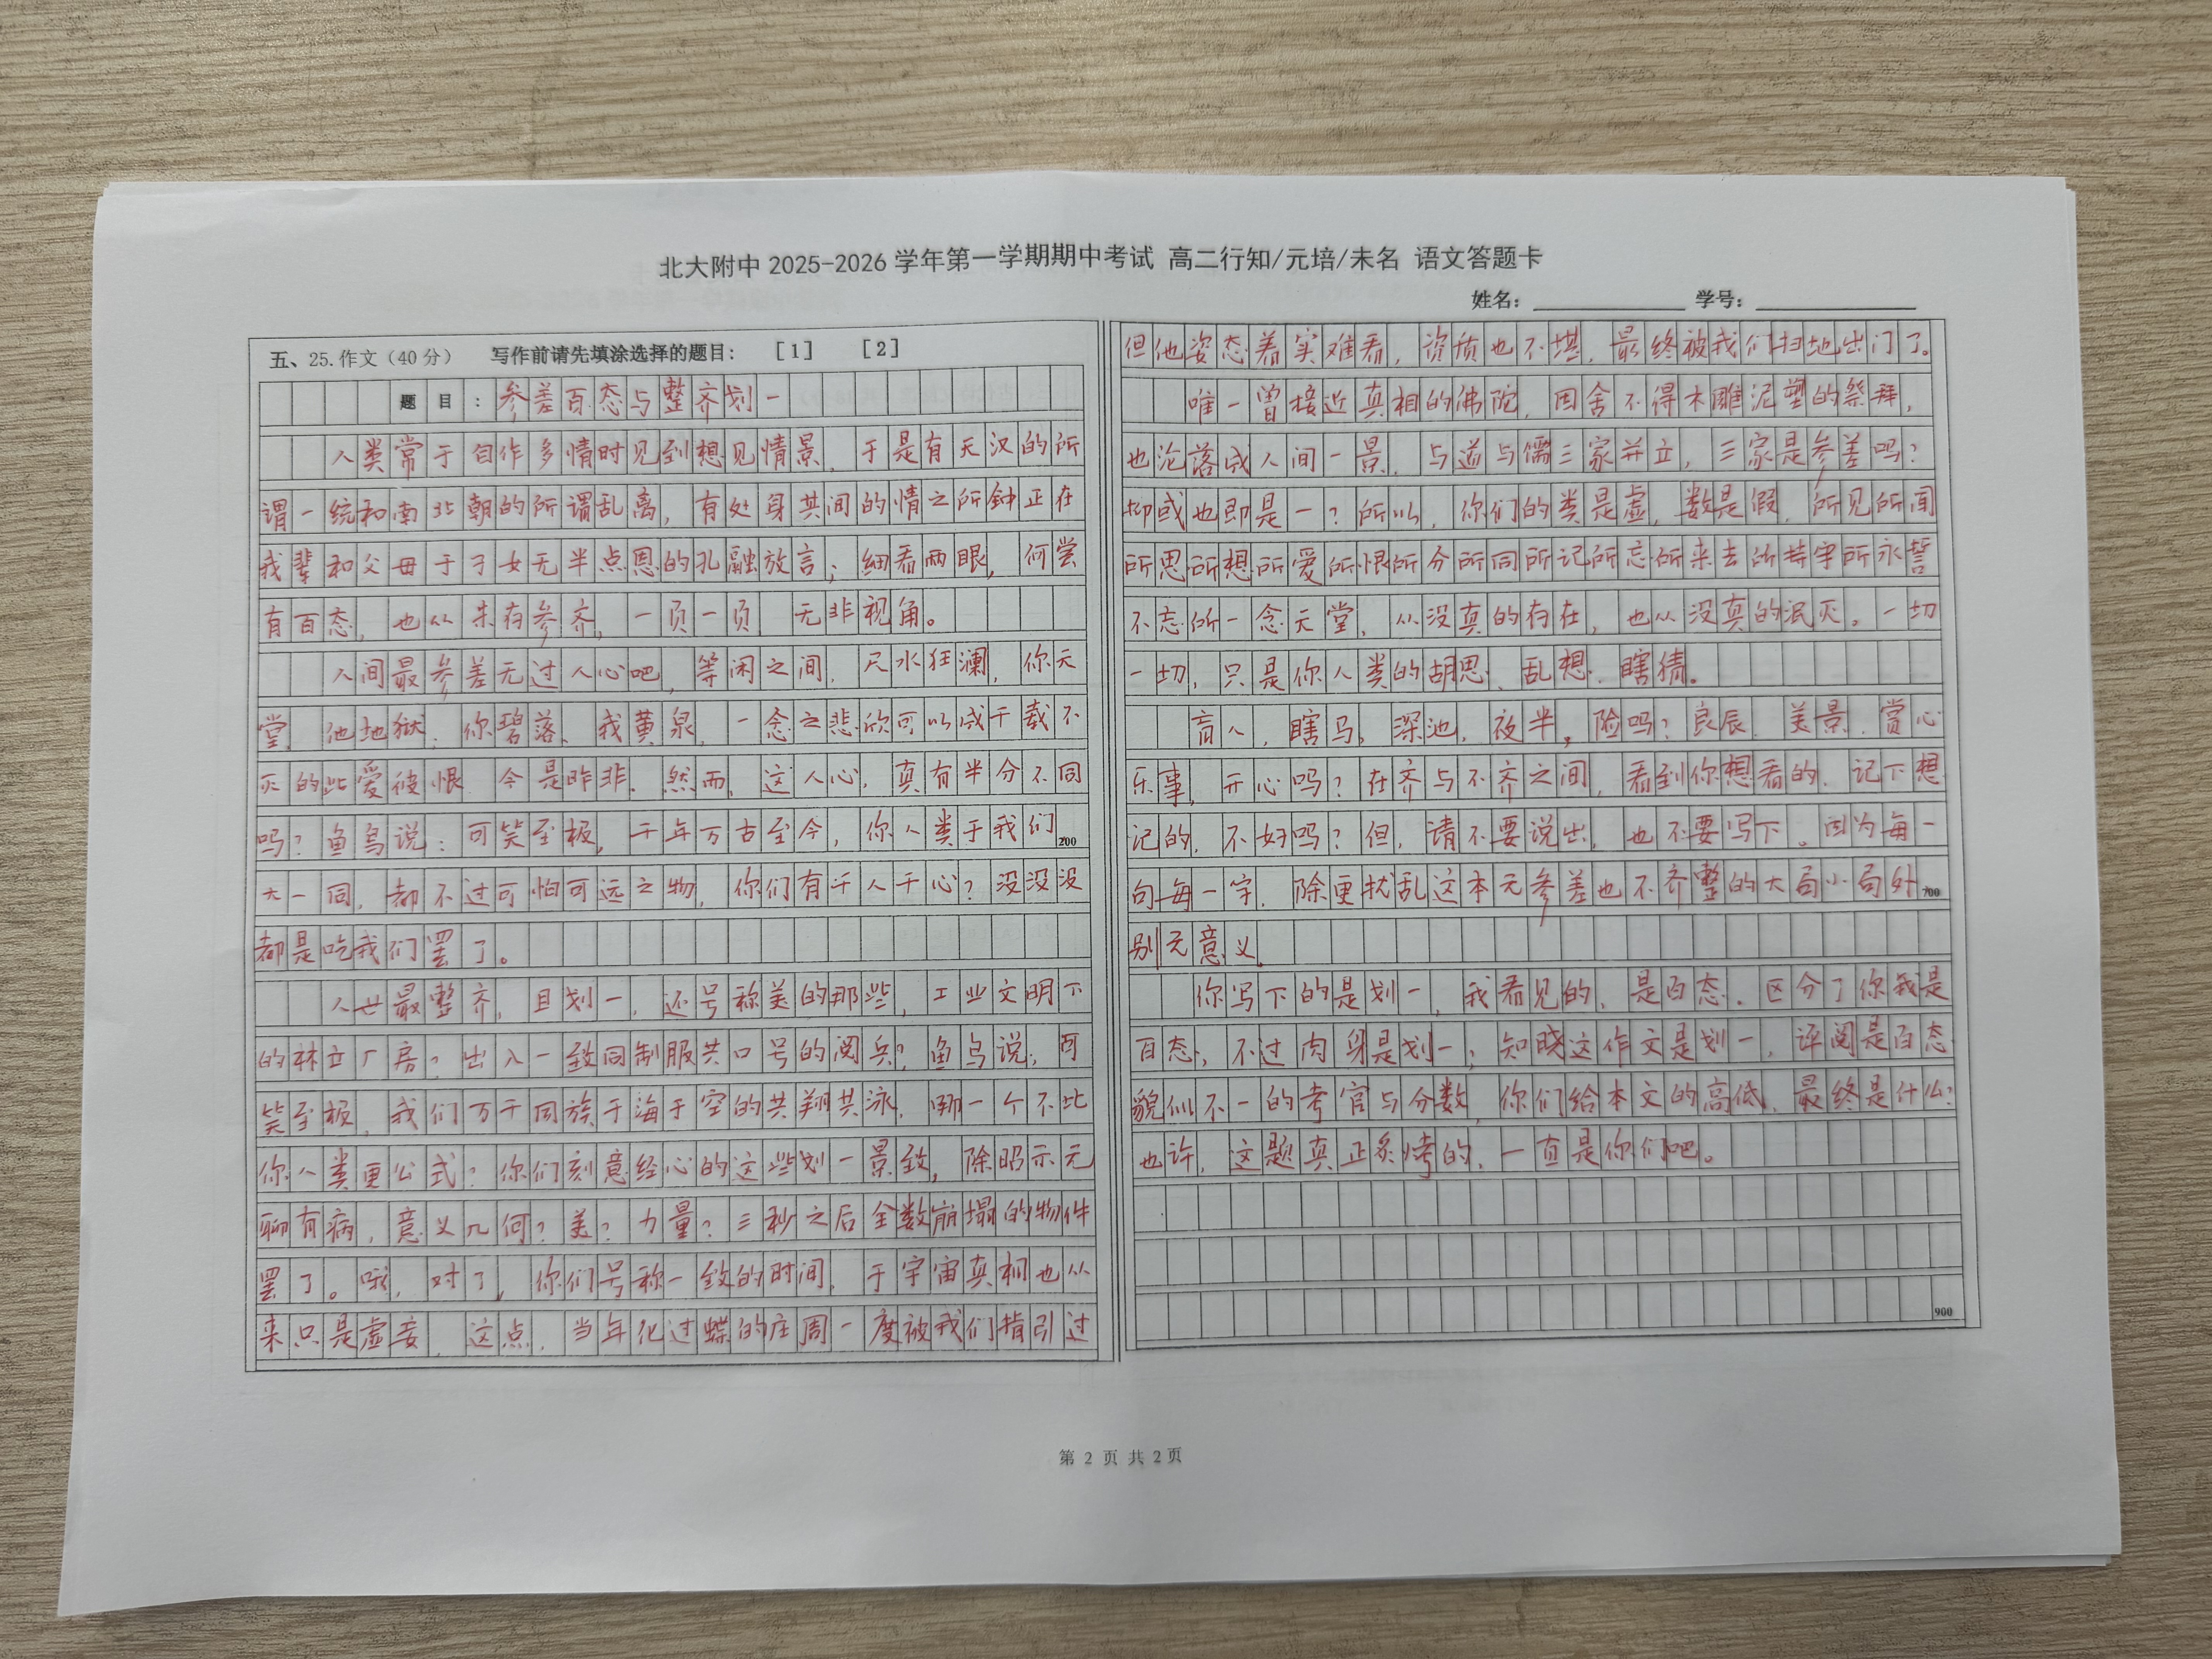 北大附中 2025-2026 学年第一学期期中考试 高二行知/元培/未名 语文答题卡
姓名： 学号：
五、25.作文（40 分） 写作前请先填涂选择的题目： [1] [2]
题 目：参差百态与整齐划一
人类常于自作多情时见到想见情景，于是有天汉的所
谓一统和南北朝的所谓乱离，有处身其间的情之所钟正在
我辈和父母于子女无半点恩的孔融放言；细看两眼，何尝
有百态，也从未有参齐，一页一页，无非视角。
人间最参差无过人心吧，等闲之间，尺水狂澜，你天
堂、他地狱、你碧落、我黄泉，一念之悲欣可以成千载不
灭的此爱彼恨、今是昨非。然而，这人心，真有半分不同
吗？鱼鸟说：可笑至极，千年万古至今，你人类于我们 200
大一同，都不过可怕可远之物，你们有千人千心？没没没
都是吃我们罢了。
人世最整齐，且划一，还号称美的那些，工业文明下
的林立厂房？出入一致同制服共口号的阅兵？鱼鸟说，可
笑至极，我们万千同族于海于空的共翔共泳，哪一个不比
你人类更公式？你们刻意经心的这些划一景致，除昭示无
聊有病，意义几何？美？力量？三秒之后全数崩塌的物件
罢了。哦，对了，你们号称一致的时间，于宇宙真相也从
来只是虚妄，这点，当年化过蝶的庄周一度被我们指引过
但他姿态着实难看，资质也不堪，最终被我们扫地出门了。
唯一曾接近真相的佛陀，因舍不得木雕泥塑的祭拜，
也沦落成人间一景，与道与儒三家并立，三家是参差吗？
抑或也即是一？所以，你们的类是虚，数是假，所见所闻
所思所想所爱所恨所分所同所记所忘所来去所持守所永誓
不忘所一念天堂，从没真的存在，也从没真的泯灭。一切
一切，只是你人类的胡思、乱想、瞎猜。
盲人，瞎马，深池，夜半，险吗？良辰、美景、赏心
乐事，开心吗？在齐与不齐之间，看到你想看的，记下想
记的，不好吗？但，请不要说出，也不要写下。因为每一
句每一字，除更扰乱这本无参差也不齐整的大局小局外 700
别无意义。
你写下的是划一，我看见的，是百态，区分了你我是
百态，不过肉身是划一，知晓这作文是划一，评阅是百态
貌似不一的考官与分数，你们给本文的高低，最终是什么？
也许，这题真正炙烤的，一直是你们吧。
900
第 2 页 共 2 页